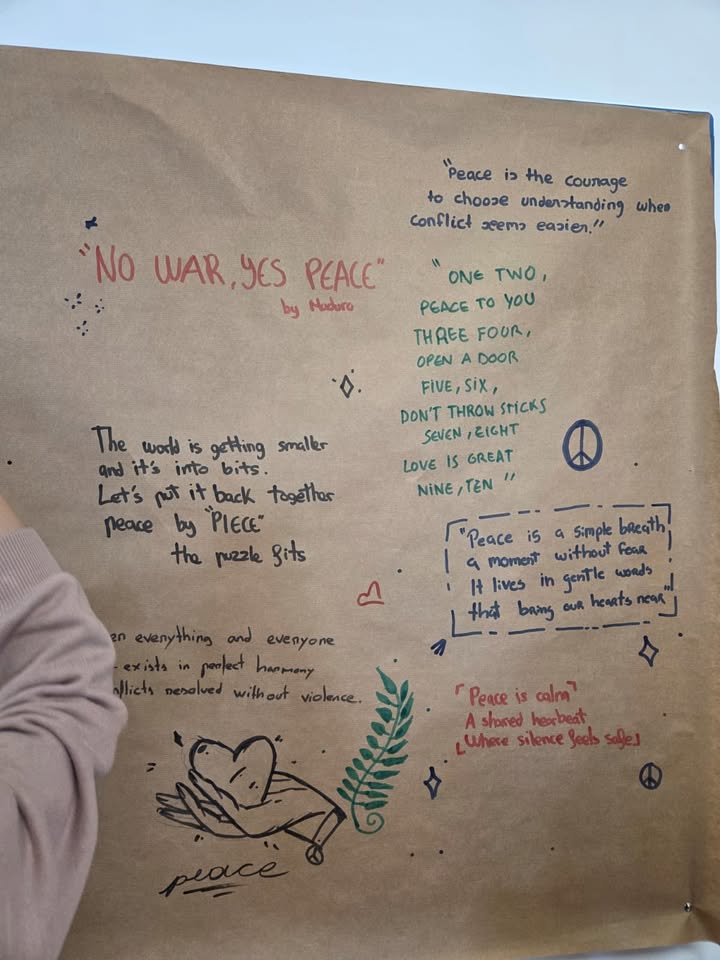 "Peace is the courage
to choose understanding when
conflict seems easier."
"NO WAR, YES PEACE"
by Maduro
"ONE TWO,
PEACE TO YOU
THREE FOUR,
OPEN A DOOR
FIVE, SIX,
DON'T THROW STICKS
SEVEN, EIGHT
LOVE IS GREAT
NINE, TEN"
The world is getting smaller
and it's into bits.
Let's put it back together
peace by "PIECE"
the puzzle fits
"Peace is a simple breath
a moment without fear
It lives in gentle words
that bring our hearts near"
everything and everyone
exists in perfect harmony
resolved without violence.
"Peace is calm"
A shared hearbeat
Where silence feels safe
peace